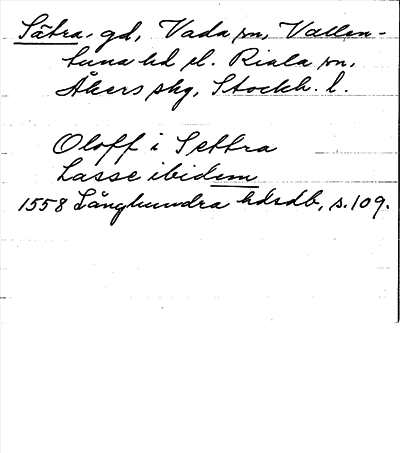 Sätra, gd, Vada sn, Vallen-
tuna hd el. Riala sn,
Åkers skg, Stockh. l.
Oloff i Settra
Lasse ibidem
1558 Långhundra hdrdb, s. 109.